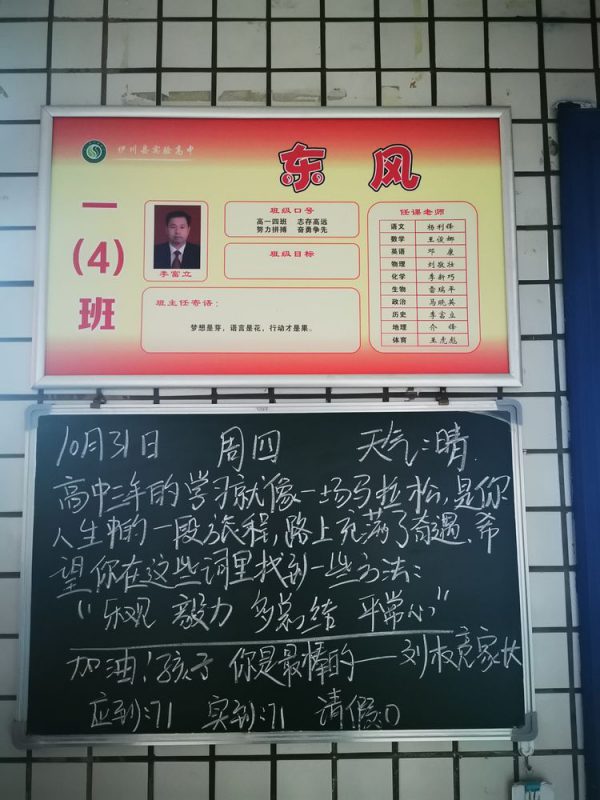 伊川县实验高中
东风
一
(4)
班
李富立
班级口号
高一四班 志存高远
努力拼搏 奋勇争先
班级目标
班主任寄语：
梦想是芽，语言是花，行动才是果。
任课老师
语文 杨利锋
数学 王俊娜
英语 邓康
物理 刘敬壮
化学 李新巧
生物 雷瑞平
政治 马晓英
历史 李富立
地理 介锋
体育 王虎彪
10月31日 周四 天气:晴.
高中三年的学习就像一场马拉松,是你
人生中的一段旅程,路上充满了奇遇、希
望你在这些词里找到一些方法:
“乐观 毅力 多总结 平常心”
加油!孩子 你是最棒的——刘权亮家长
应到:71 实到:71 请假:0